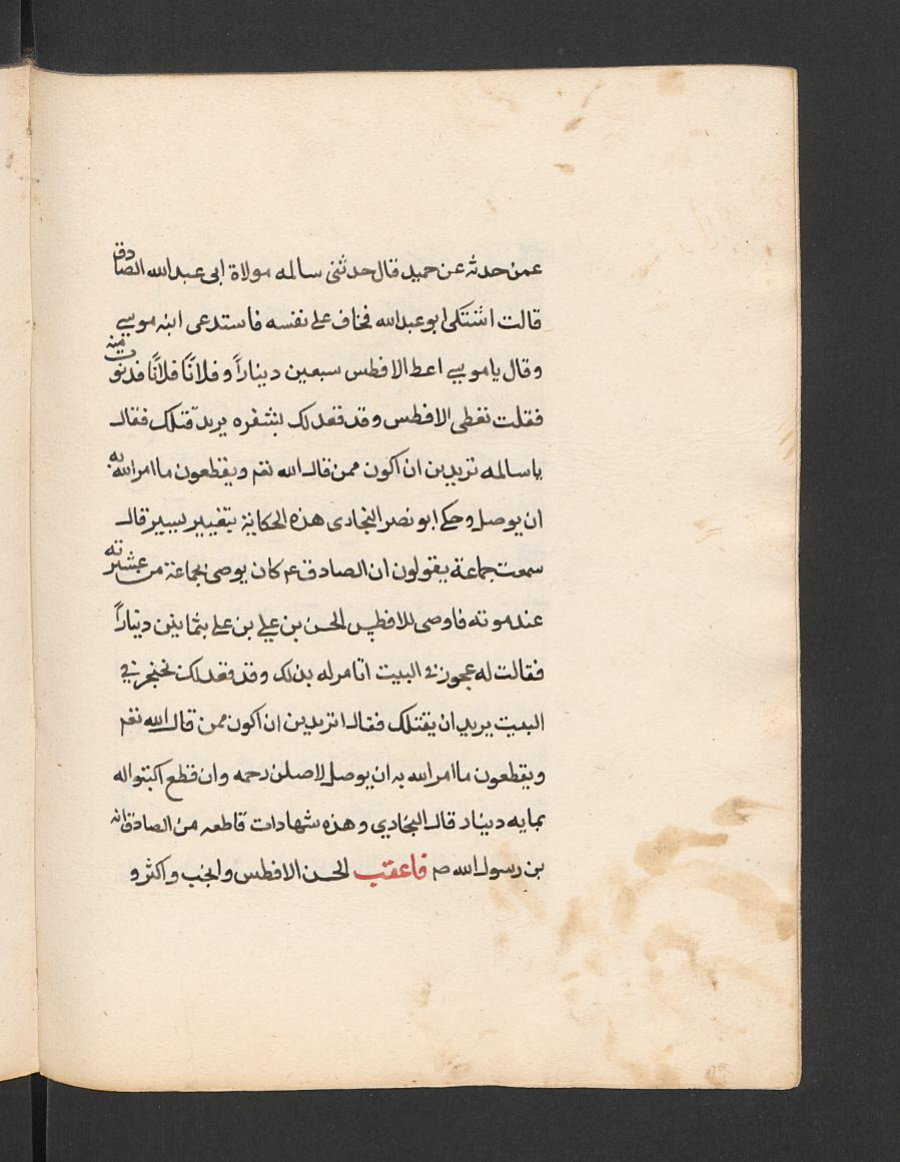 عمن حدثه عن حميد قال حدثنى سالمه مولاة ابى عبدالله الصادق
قالت اشتكى ابو عبدالله فخاف على نفسه فاستدعى ابنه موسى
وقال يا موسى اعط الافطس سبعين ديناراً وفلانًا فلانًا فدنوت منه
فقلت تعطى الافطس وقد قعد لك بشفره يريد قتلك فقال
يا سالمه تريدين ان اكون ممن قال الله تعم ويقطعون ما امر الله به
ان يوصل وحكى ابو نصر البخارى هذه الحكاية بتغيير يسير قال
سمعت جماعة يقولون ان الصادق عم كان يوصى لجماعة من عشيرته
عند موته فاوصى للافطس الحسن بن على بن على بثمانين ديناراً
فقالت له عجوز فى البيت اتامر له بذلك وقد قعد لك بخنجر فى
البيت يريد ان يقتلك فقال اتريدين ان اكون ممن قال الله تعم
ويقطعون ما امر الله به ان يوصل لاصلن رحمه وان قطع اكتبوا له
بمايه دينار قال البخاري وهذه شهادات قاطعه من الصادق انه
بن رسول الله صم فاعقب الحسن الافطس وانجب واكثر و